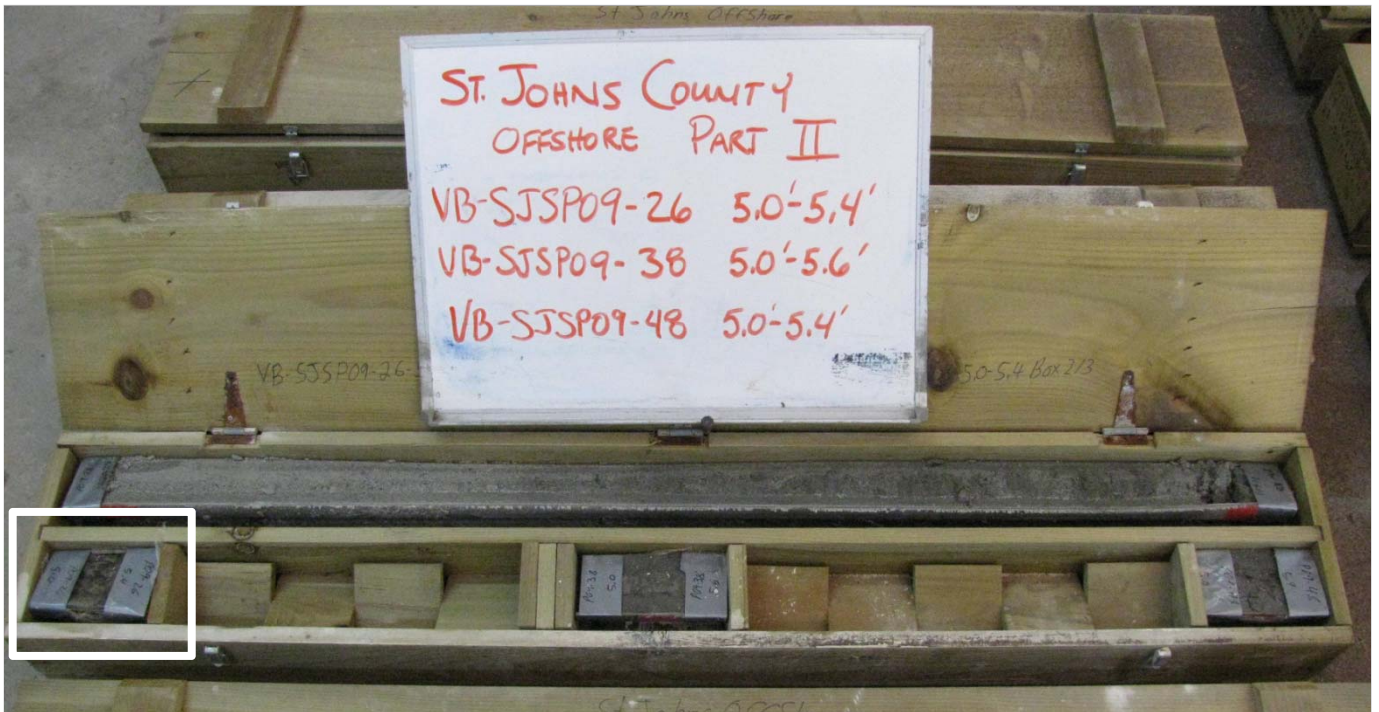 St Johns Offshore
ST. JOHNS COUNTY
OFFSHORE PART II
VB-SJSP09-26 5.0'-5.4'
VB-SJSP09-38 5.0'-5.6'
VB-SJSP09-48 5.0'-5.4'
VB-SJSP09-26- 5.0-5.4 Box 2/3
P09-38
5.0
P09-38
5.6
St Johns